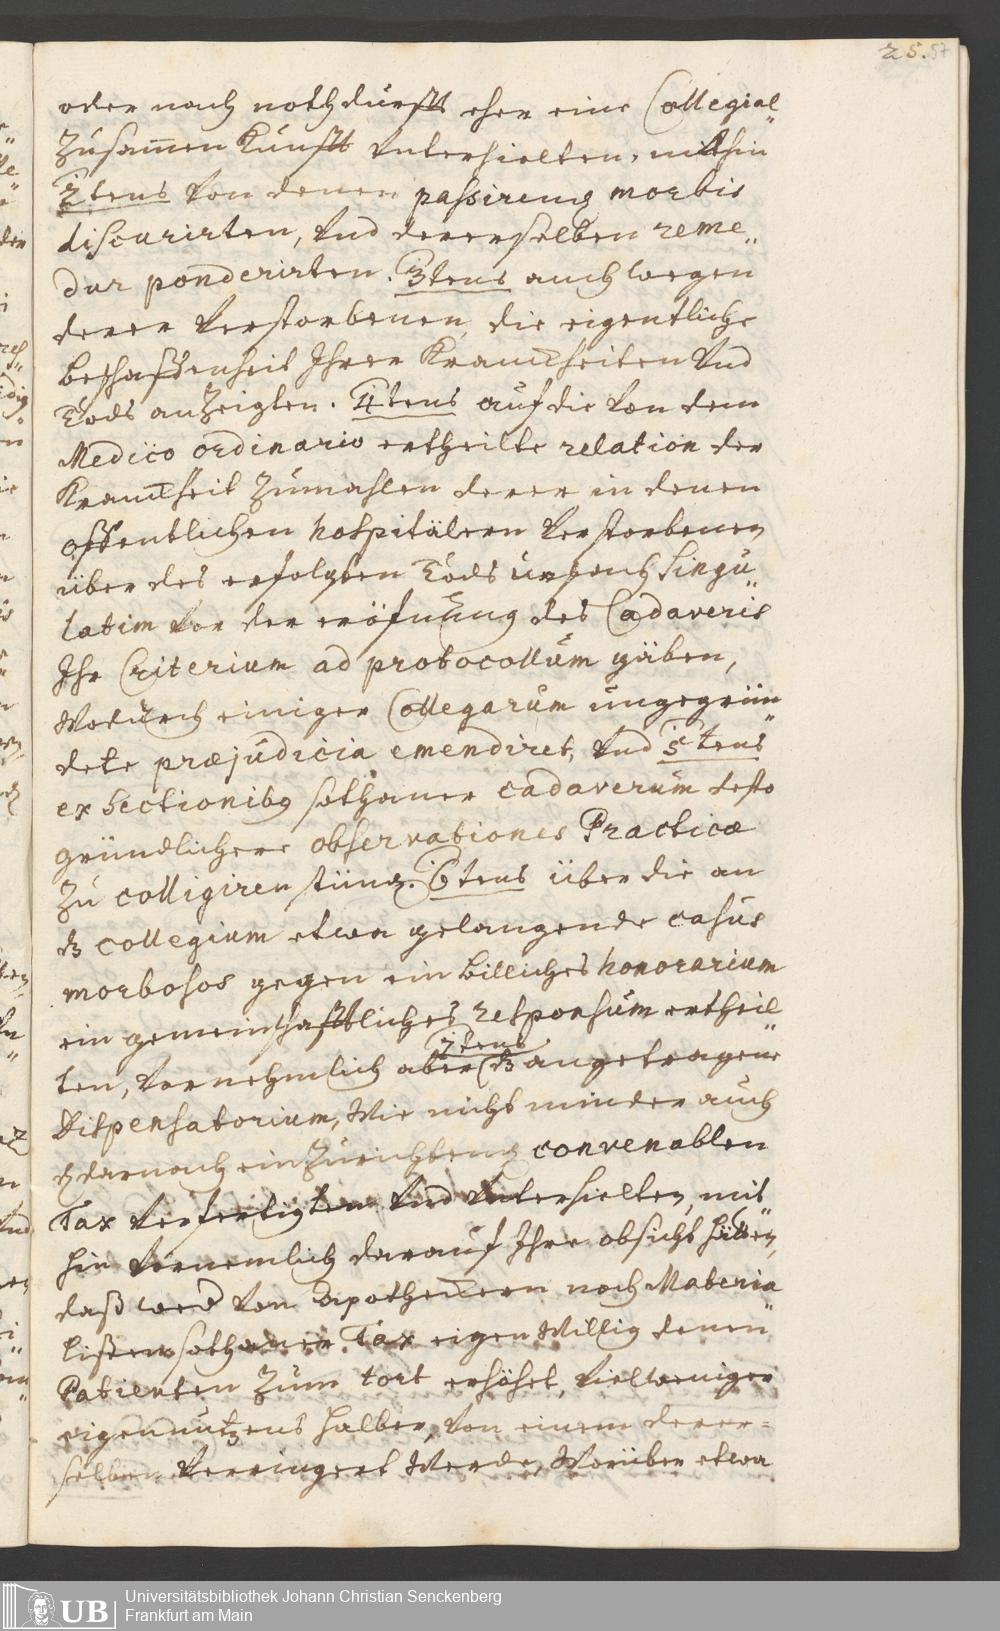 25. 57
oder nach nothdurfft eher eine Collegial„
Zusam̄en Kunfft unterhielten, mithin
2tens von denen passirend morbis
discurirten, und dererselben reme„
dur ponderirten. 3tens auch wegen
derer verstorbenen die eigentliche
beschaffenheit Ihrer Kranckheiten und
Tods anzeigten. 4tens auf die von dem
Medico ordinario ertheilte relation der
Kranckheit zumahlen derer in denen
offentlichen hospitälern verstorbenen
über des erfolgten Tods ursach singu„
latim vor der eröfnung des Cadaveris
Ihr Criterium ad protocollum gäben,
Wodurch einiger Collegarum ungegrün„
dete præjudicia emendiret, und 5tens
ex Sectionibus sothaner cadaverum desto
gründlichere observationes Practicæ
Zu colligiren stünd. 6tens über die an
dz collegium etwa gelangende casus
morbosos gegen ein billiches honorarium
ein gemeinschafftliches responsum ertheil„
ten, vornehmlich aber 7tens dz angetragene
Dispensatorium, Wie nicht minder auch
darnach einzurichtend convenablen
Tax verfertigten und unterhielten, mit„
hin vornemlich darauf Ihre absicht hätten,
daß weder von Apotheckern noch Materia„
listen sothaner Tax eigen Willig denen
Patienten Zum tort erhöhet, vielweniger
eigennutzens halber, von einem derer=
selben verringert Werde, Worüber etwa
UB
Universitätsbibliothek Johann Christian Senckenberg
Frankfurt am Main